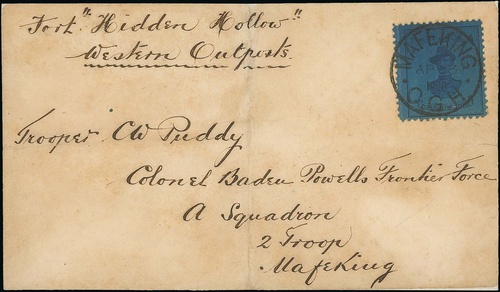 Fort "Hidden Hollow"
Western Outposts
MAFEKING
C.G.H.
Trooper CW Puddy
Colonel Baden Powells Frontier Force
A Squadron
2 Troop
Mafeking